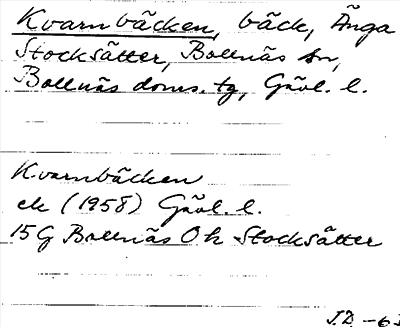 Kvarnbäcken, bäck, Änga
Stocksätter, Bollnäs sn,
Bollnäs doms. tg, Gävl. l.
Kvarnbäcken
ek (1958) Gävl. l.
15G Bollnäs Oh Stocksätter
J.D. -63